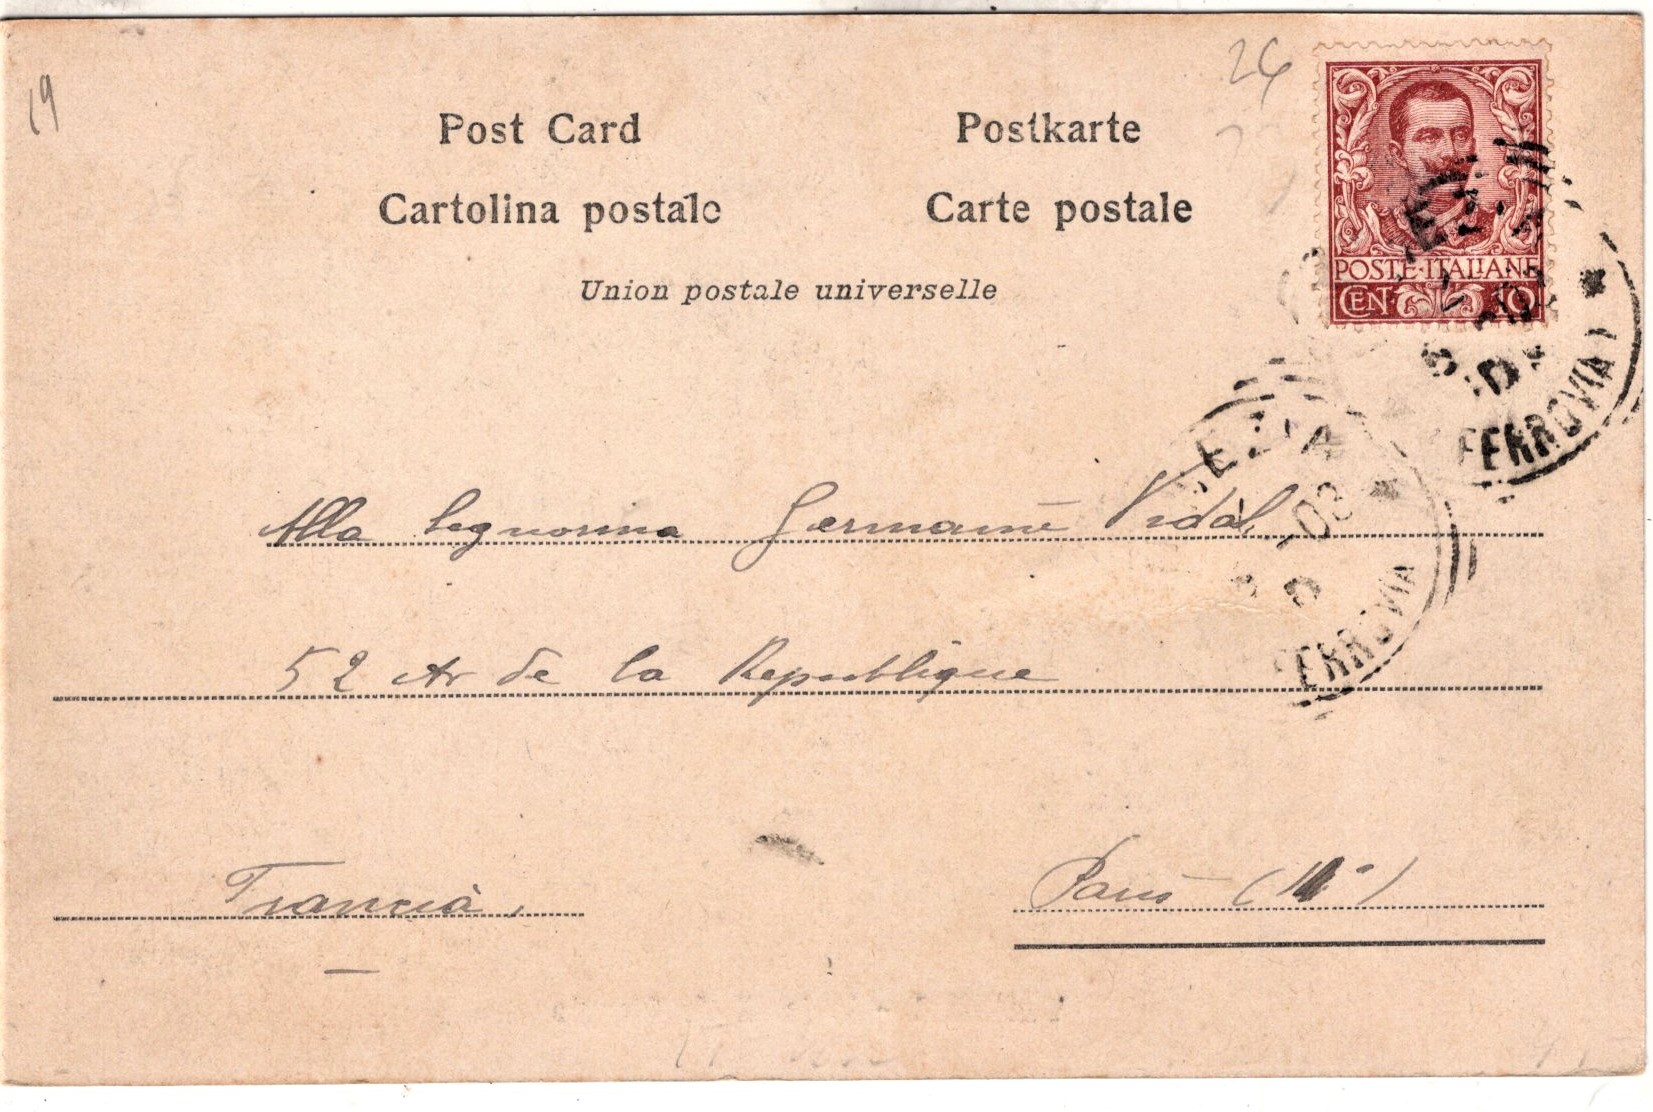 19
26
Post Card
Postkarte
Cartolina postale
Carte postale
Union postale universelle
POSTE·ITALIANE
CEN 10
EZIA
03
FERROVIA)
FERROVIA
Alla Segnorina Germaine Vidal
52 Av de la Republique
Francia,
Paris (11°)